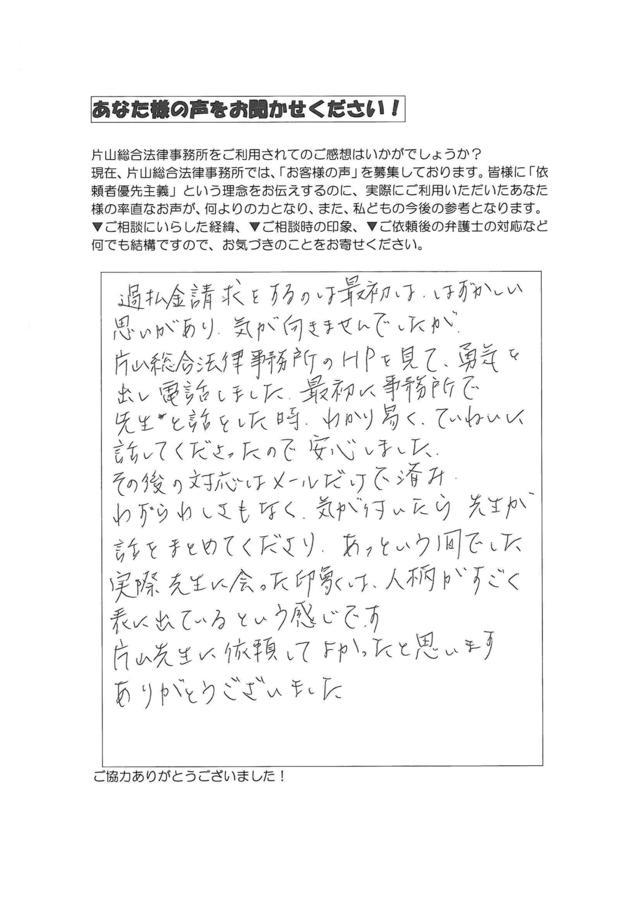 あなた様の声をお聞かせください！
片山総合法律事務所をご利用されてのご感想はいかがでしょうか？
現在、片山総合法律事務所では、「お客様の声」を募集しております。皆様に「依
頼者優先主義」という理念をお伝えするのに、実際にご利用いただいたあなた
様の率直なお声が、何よりの力となり、また、私どもの今後の参考となります。
▼ご相談にいらした経緯、▼ご相談時の印象、▼ご依頼後の弁護士の対応など
何でも結構ですので、お気づきのことをお寄せください。
過払金請求をするのは最初は、はずかしい
思いがあり、気が向きませんでしたが、
片山総合法律事務所のHPを見て、勇気を
出し電話しました。最初に事務所で
先生と話をした時、わかり易く、ていねいに
話してくださったので安心しました。
その後の対応はメールだけで済み、
わずらわしさもなく、気が付いたら先生が
話をまとめてくださり、あっという間でした
実際先生に会った印象は、人柄がすごく
表に出ているという感じです
片山先生に依頼してよかったと思います
ありがとうございました
ご協力ありがとうございました！